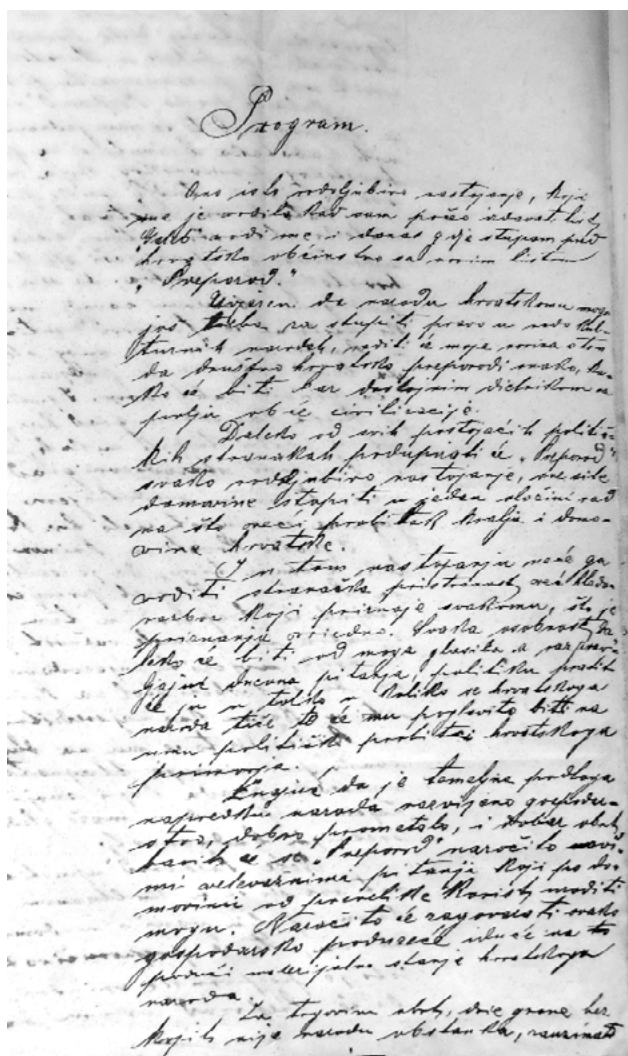 Program.
Ono isto rodoljubivo nastojanje, koje
me je vodilo kad sam počeo izdavat list
vodi me i danas gdje stupam pred
hrvatsko občinstvo sa novim listom
"Preporod."
Uvjeren da narodu hrvatskomu mnogo
još treba za stupiti pravo u red kul-
turnih narodah, raditi će moje novine o tom
da društvo hrvatsko preporodi onako, ka-
ko će biti bar dostojnim dietnikom na
polju obće civilizacije.
Daleko od svih postojećih politič-
kih stranakah podupirati će "Preporod"
svako rodoljubivo nastojanje, sve sile
domovine stupiti u jedan složni rad
na što veći probitak kralja i domo-
vine hrvatske.
I u tom nastojanju neće ga
voditi stranačka pristranost, već hladan
razbor koji priznaje svakomu, što je
priznanja vriedno. Svaka osobnost da-
leko će biti od moga glasila a razprav-
ljajuć dnevna pitanja, politiku pratit
će ju u toliko u koliko se hrvatskoga
naroda tiče te će mu poglavito biti na
umu politički probitci hrvatskoga
primorja.
da je temeljna podloga
napredku naroda razvijeno gospodar-
stvo, dobro prometalo, i dobar obrt,
baviti će se "Preporod" naročito ovi-
mi velevažnima pitanji koji po do-
movinu od prevelike koristi roditi
mogu. Naročito će zagovarati svako
gospodarsko poduzeće iduće na to
podići materijalno stanje hrvatskoga
naroda.
Za trgovinu obrt, dvie grane bez
kojih nije narodu obstanka,